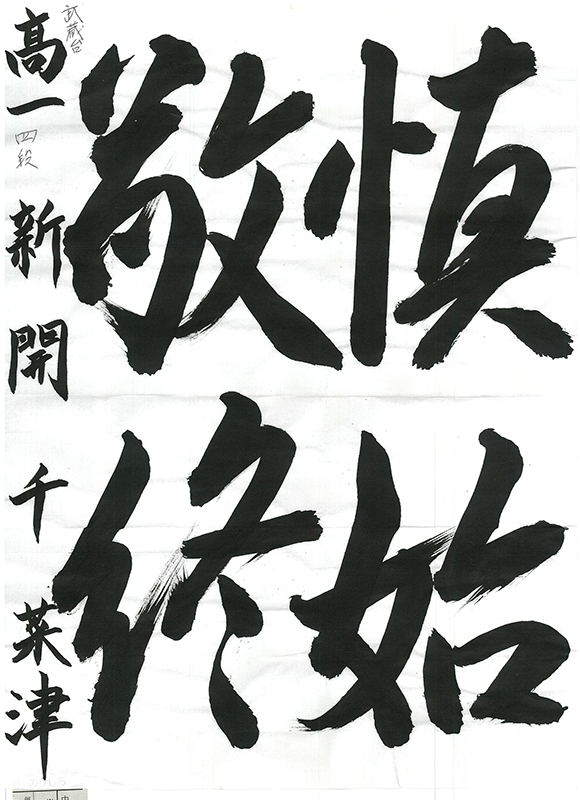 慎始
敬終
武蔵台
高一 四段 新開千菜津